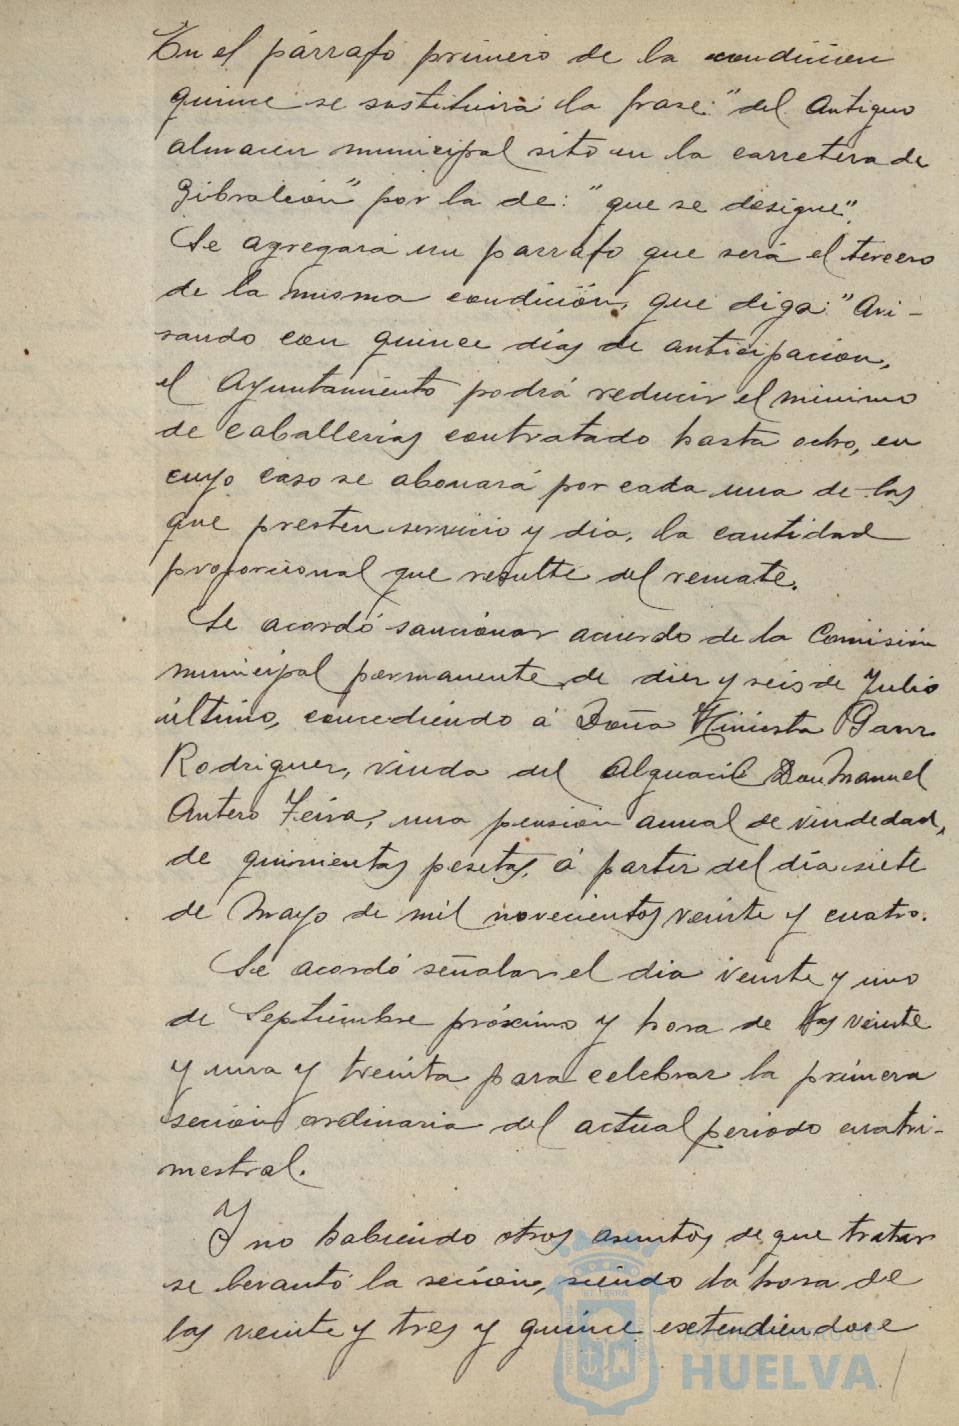 En el párrafo primero de la condicion
quince se sustituirá la frase: "del Antiguo
almacen municipal sito en la carretera de
Gibraleon" por la de: "que se designe".
Se agregará un parrafo que será el tercero
de la misma condición, que diga: "Avi-
sando con quince dias de anticipacion,
el Ayuntamiento podrá reducir el minimo
de caballerias contratado hasta ocho, en
cuyo caso se abonará por cada una de las
que presten servicio y dia, la cantidad
proporcional que resulte del remate.
Se acordó sancionar acuerdo de la Comisión
municipal permanente de diez y seis de Julio
último, concediendo á Doña
Rodriguez, viuda del Alguacil Don Manuel
Antero Feira, una pension anual de viudedad,
de quinientas pesetas, á partir del día siete
de Mayo de mil novecientos veinte y cuatro.
Se acordó señalar el dia veinte y uno
de Septiembre próximo y hora de las veinte
y una y treinta para celebrar la primera
secion ordinaria del actual periodo cuatri-
mestral.
Y no habiendo otros asuntos de que tratar
se levantó la secion, siendo la hora de
las veinte y tres y quince extendiendose
Ayuntamiento de
HUELVA